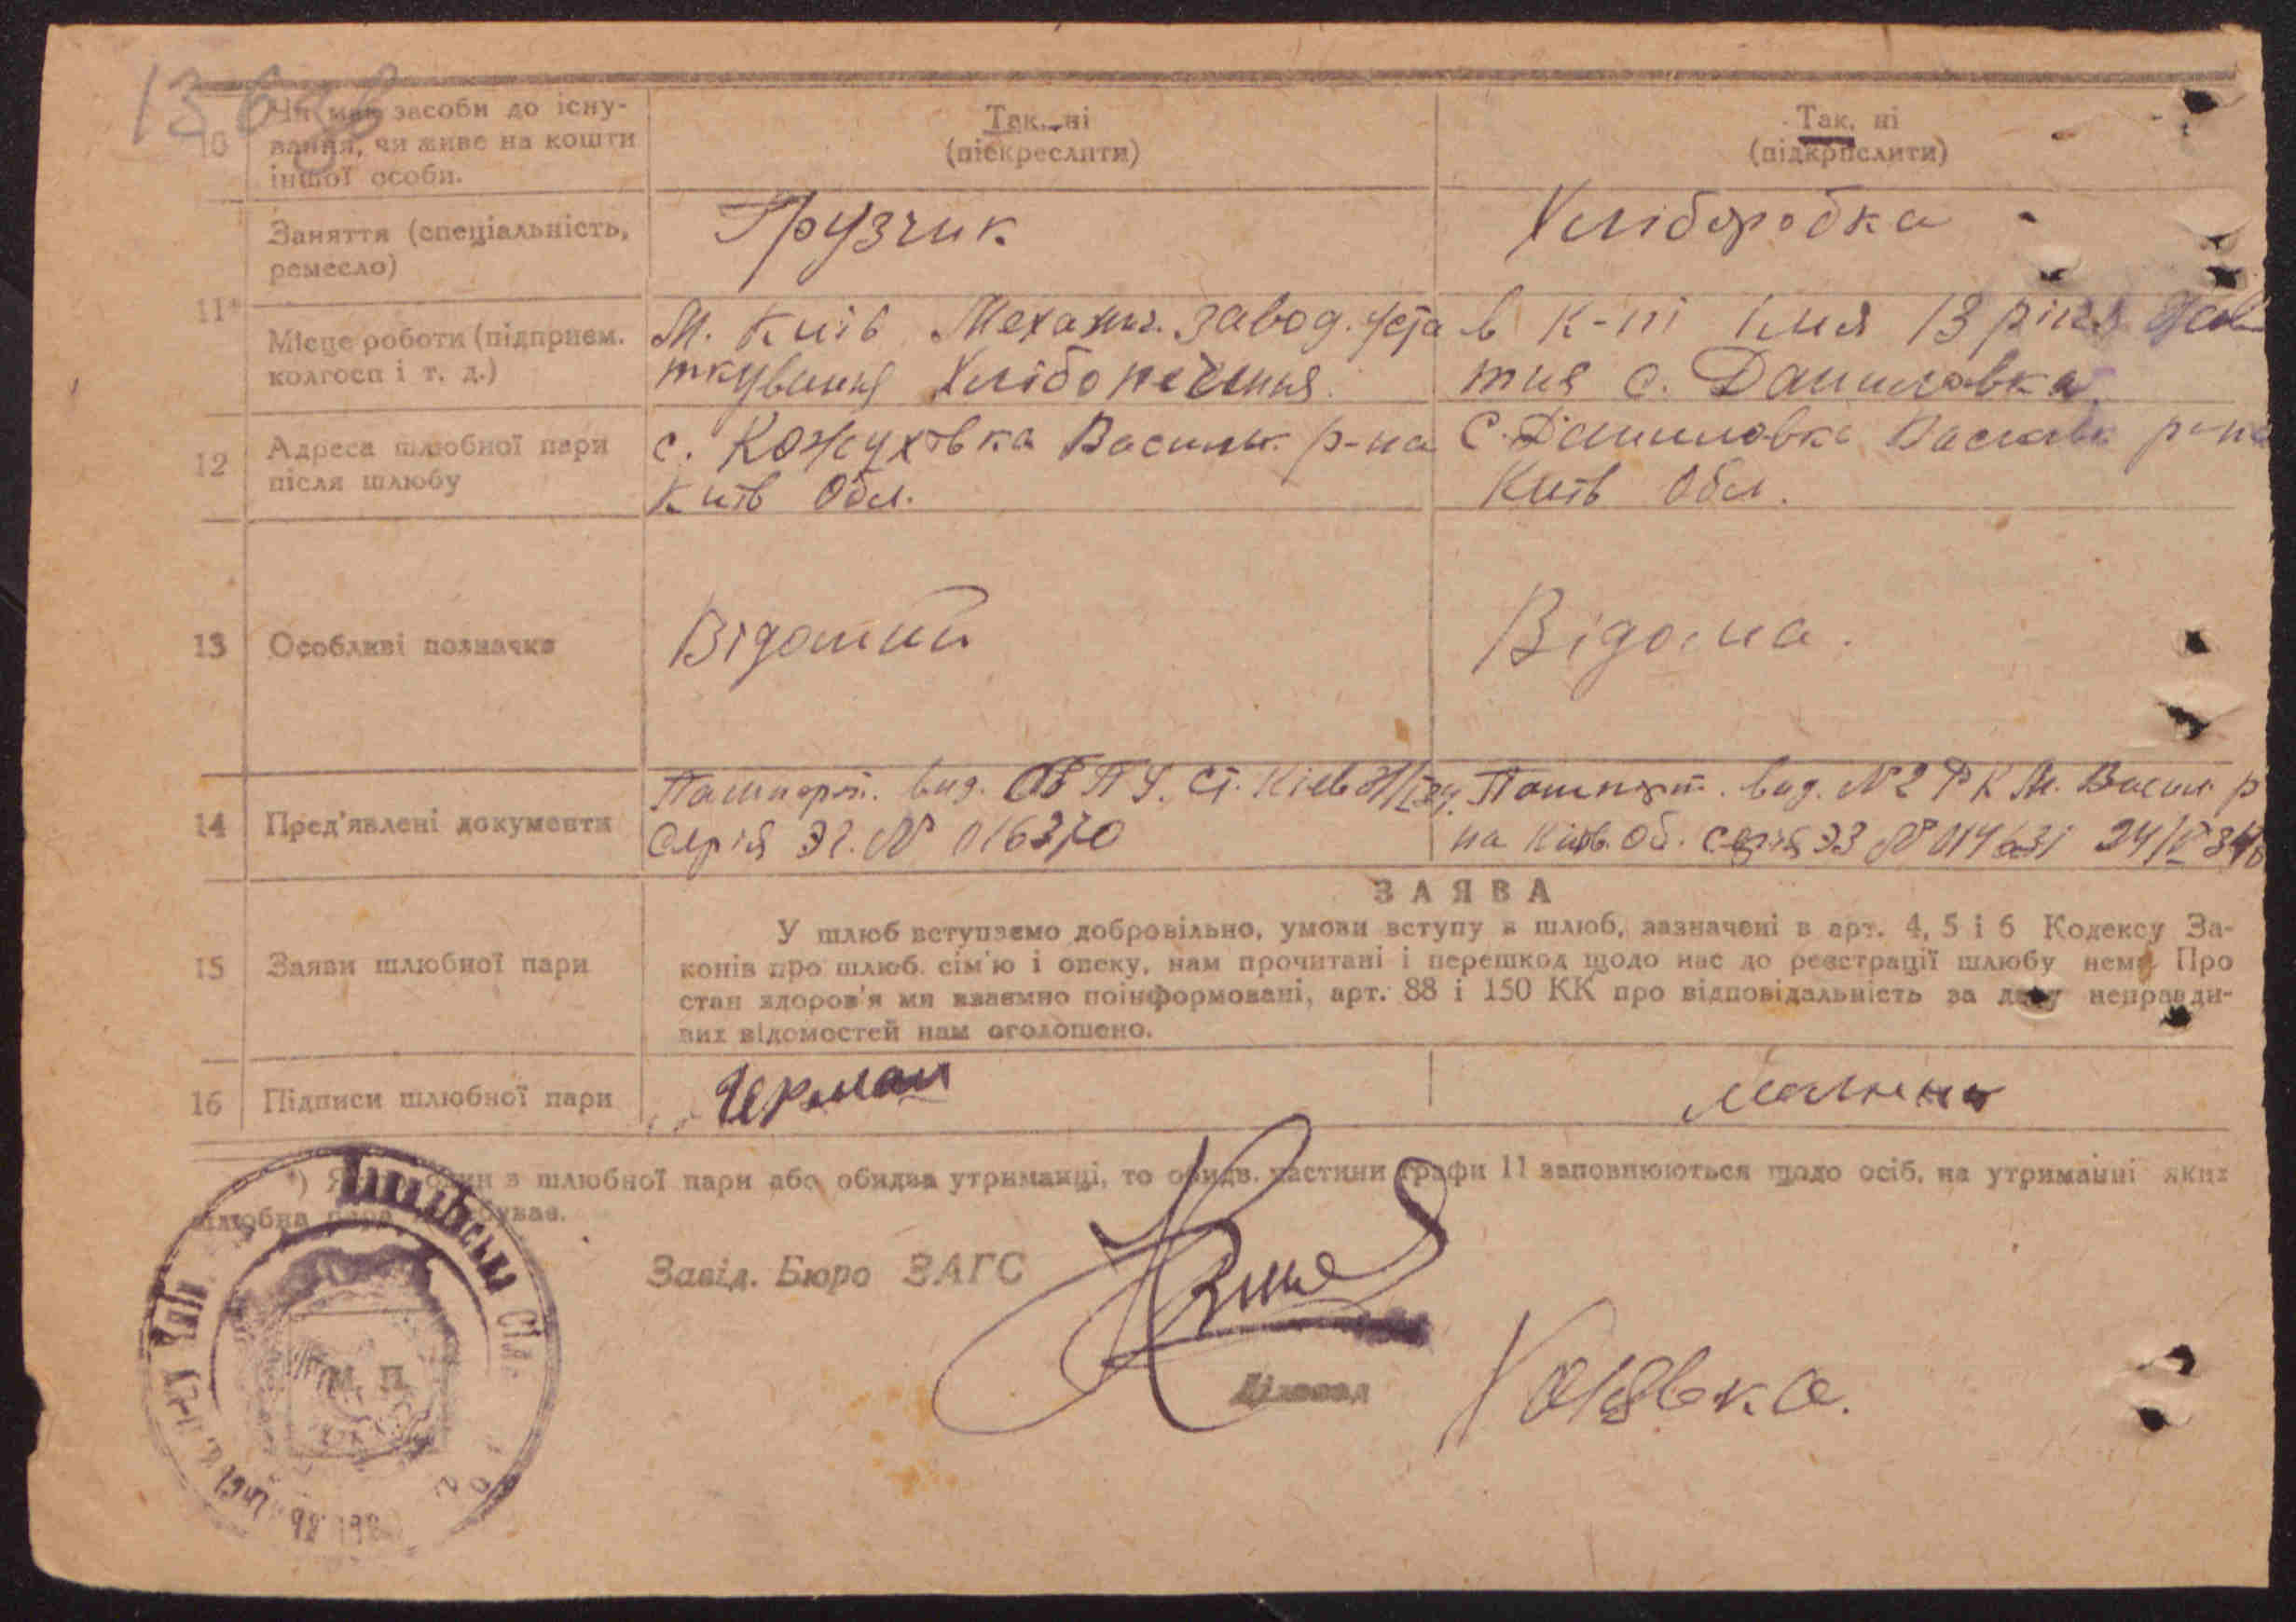 10 Чи має засоби до існу-
вання, чи живе на кошти
іншої особи.
Так, ні
(піскреслити)
Так, ні
(підкрислити)
11*
Заняття (спеціальність,
ремесло)
Грузчик
Хліборобка
Місце роботи (підприєм.
колгосп і т. д.)
М. Київ Механич. завод. уста
ткування Хлібопечення.
в к-пі імя 13 річя Жов
тня с. Даниловка.
12 Адреса шлюбної пари
після шлюбу
с. Кожуховка Васильк. р-на
Київ Обл.
С. Даниловка р-на
Київ Обл.
13 Особливі позначки
Відомий
Відома.
14 Пред'явлені документи
Пашпорт. вид. ст. Київ
Серія Э2. № 016370
Пашпорт. вид. №2 Р К М. Васил р
на Київ. Об. серія ЭЗ № 014631
15 Заяви шлюбної пари
ЗАЯВА
У шлюб вступаємо добровільно, умови вступу в шлюб, зазначені в арт. 4, 5 і 6 Кодексу За-
конів про шлюб, сім'ю і опеку, нам прочитані і перешкод щодо нас до реєстрації шлюбу нема Про
стан здоров'я ми взаємно поінформовані, арт. 88 і 150 КК про відповідальність за дачу неправди-
вих відомостей нам оголошено.
16 Підписи шлюбної пари
*) Якщо один з шлюбної пари або обидва утриманці, то обидв. частини графи 11 заповнюються щодо осіб, на утриманні яких
шлюбна пара перебуває.
Завід. Бюро ЗАГС
Діловод
М. П.